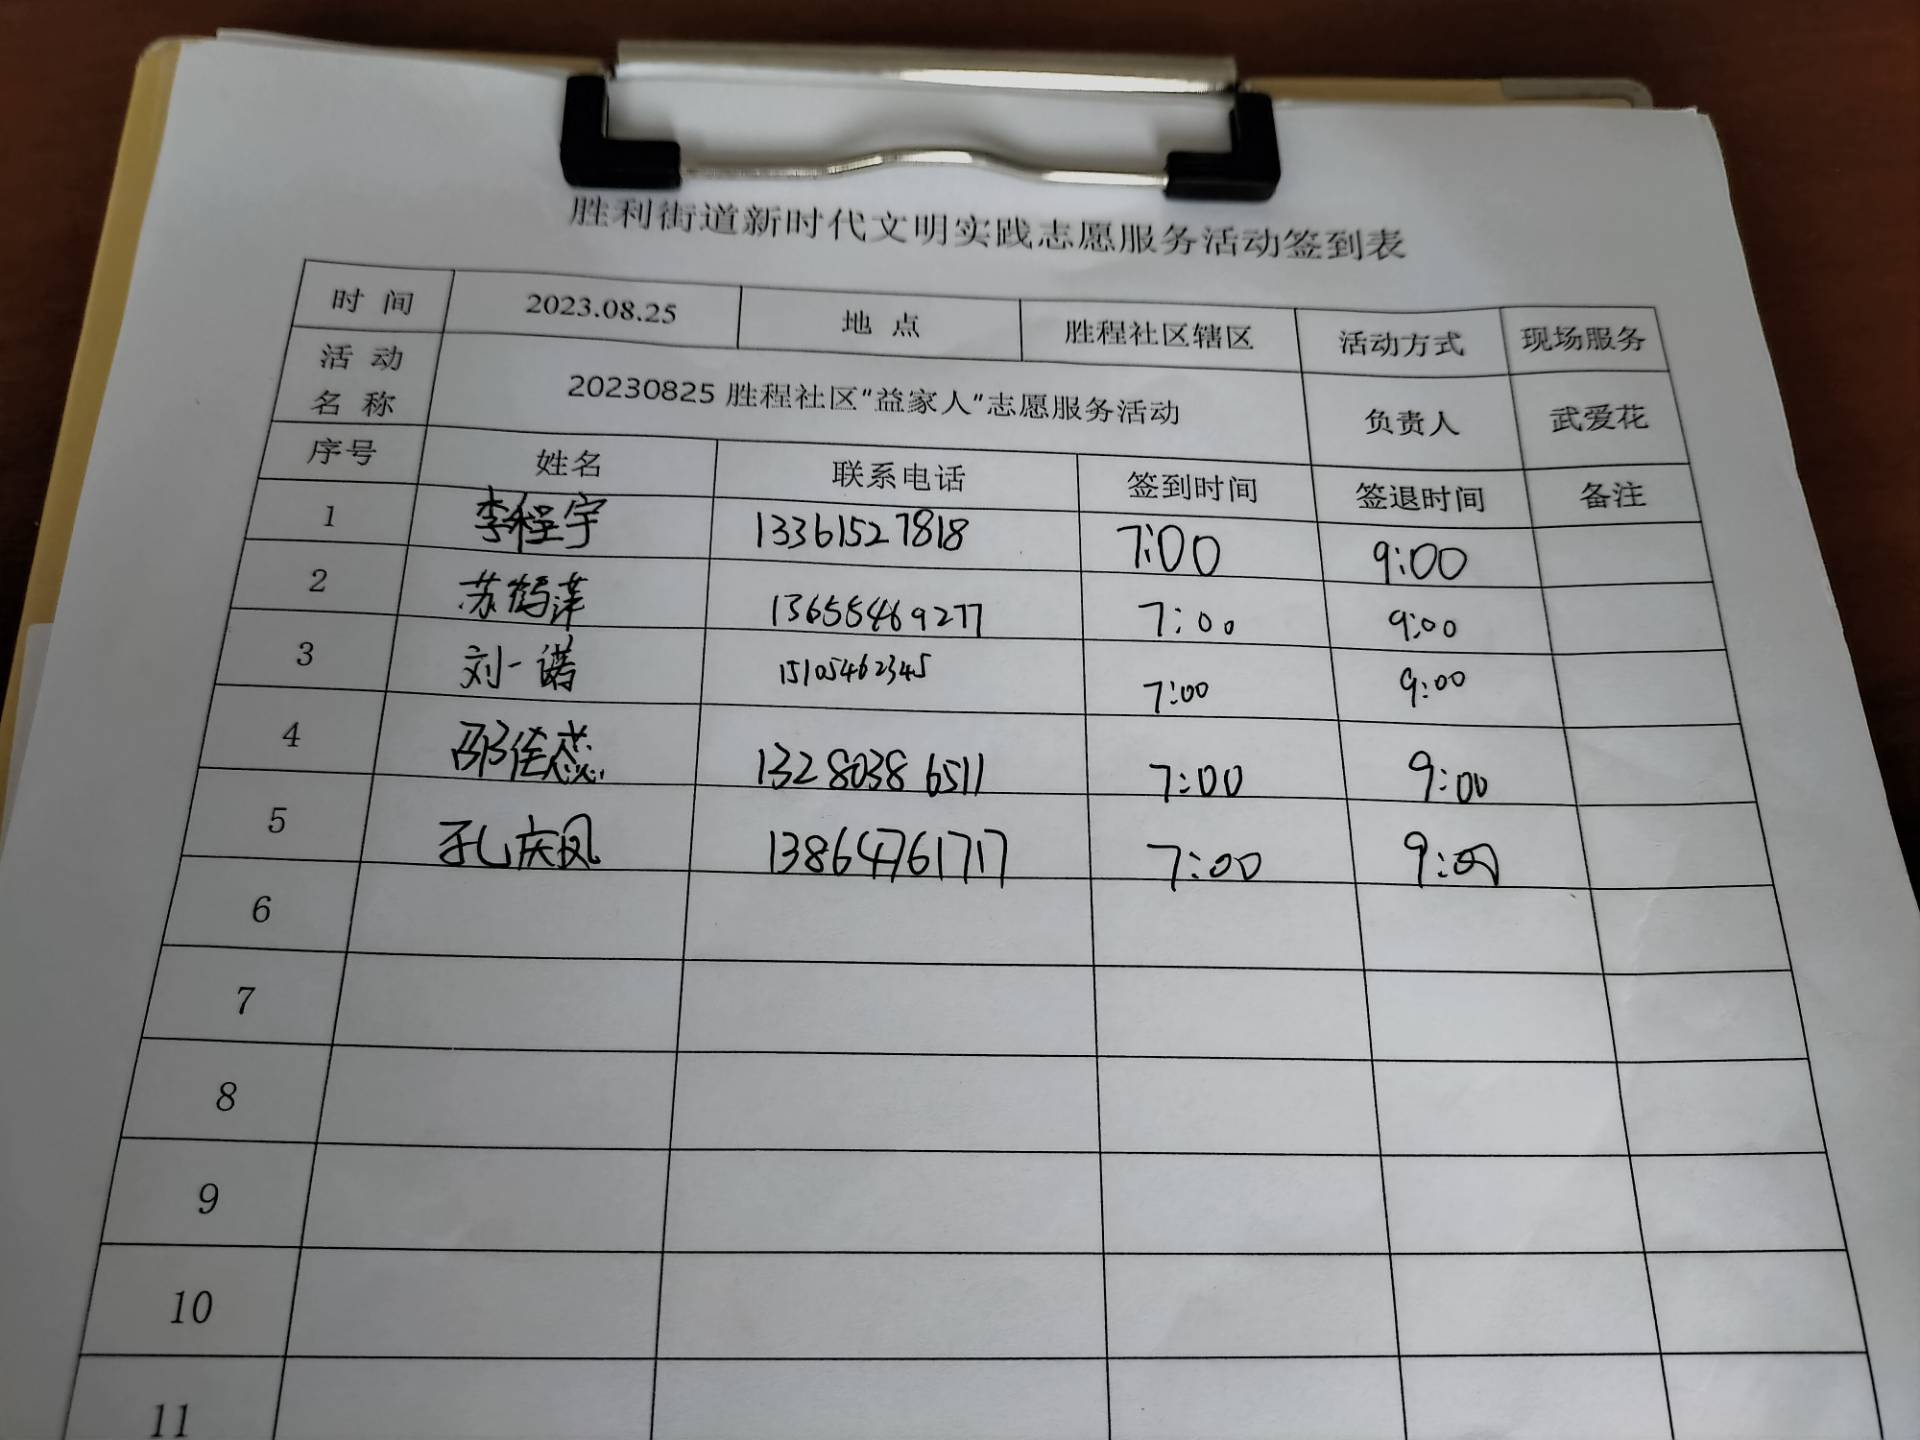 胜利街道新时代文明实践志愿服务活动签到表
时 间 2023.08.25 地 点 胜程社区辖区 活动方式 现场服务
活 动 名 称 20230825 胜程社区“益家人”志愿服务活动 负责人 武爱花
序号 姓名 联系电话 签到时间 签退时间 备注
1 李程宇 13361527818 7:00 9:00
2 苏鹤萍 13655469277 7:00 9:00
3 刘一诺 15105462345 7:00 9:00
4 邵佳蕊 13280386511 7:00 9:00
5 孔庆凤 13864761717 7:00 9:00
6
7
8
9
10
11